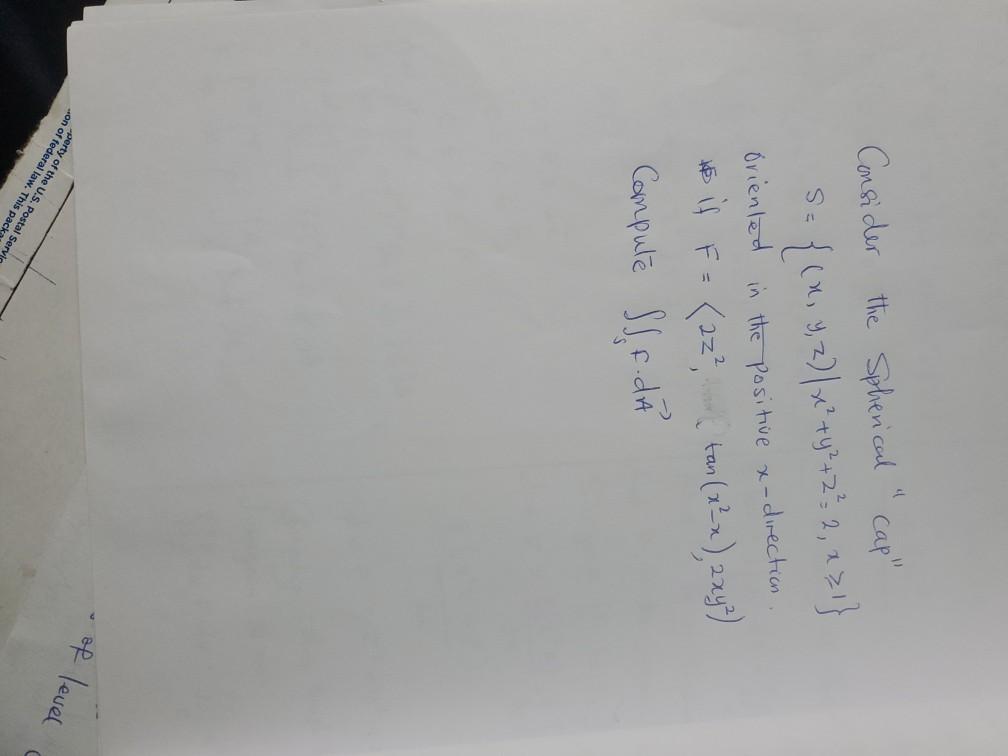 Consider the Spherical "cap"
S = {(x, y, z) | x² + y² + z² = 2, x ≥ 1}
Oriented in the positive x-direction.
if F = ⟨2z², tan(x²-x), 2xy²⟩
Compute ∬ₛ F·dA⃗
perty of the U.S. Postal Servic
on of federal law. This packa
of level